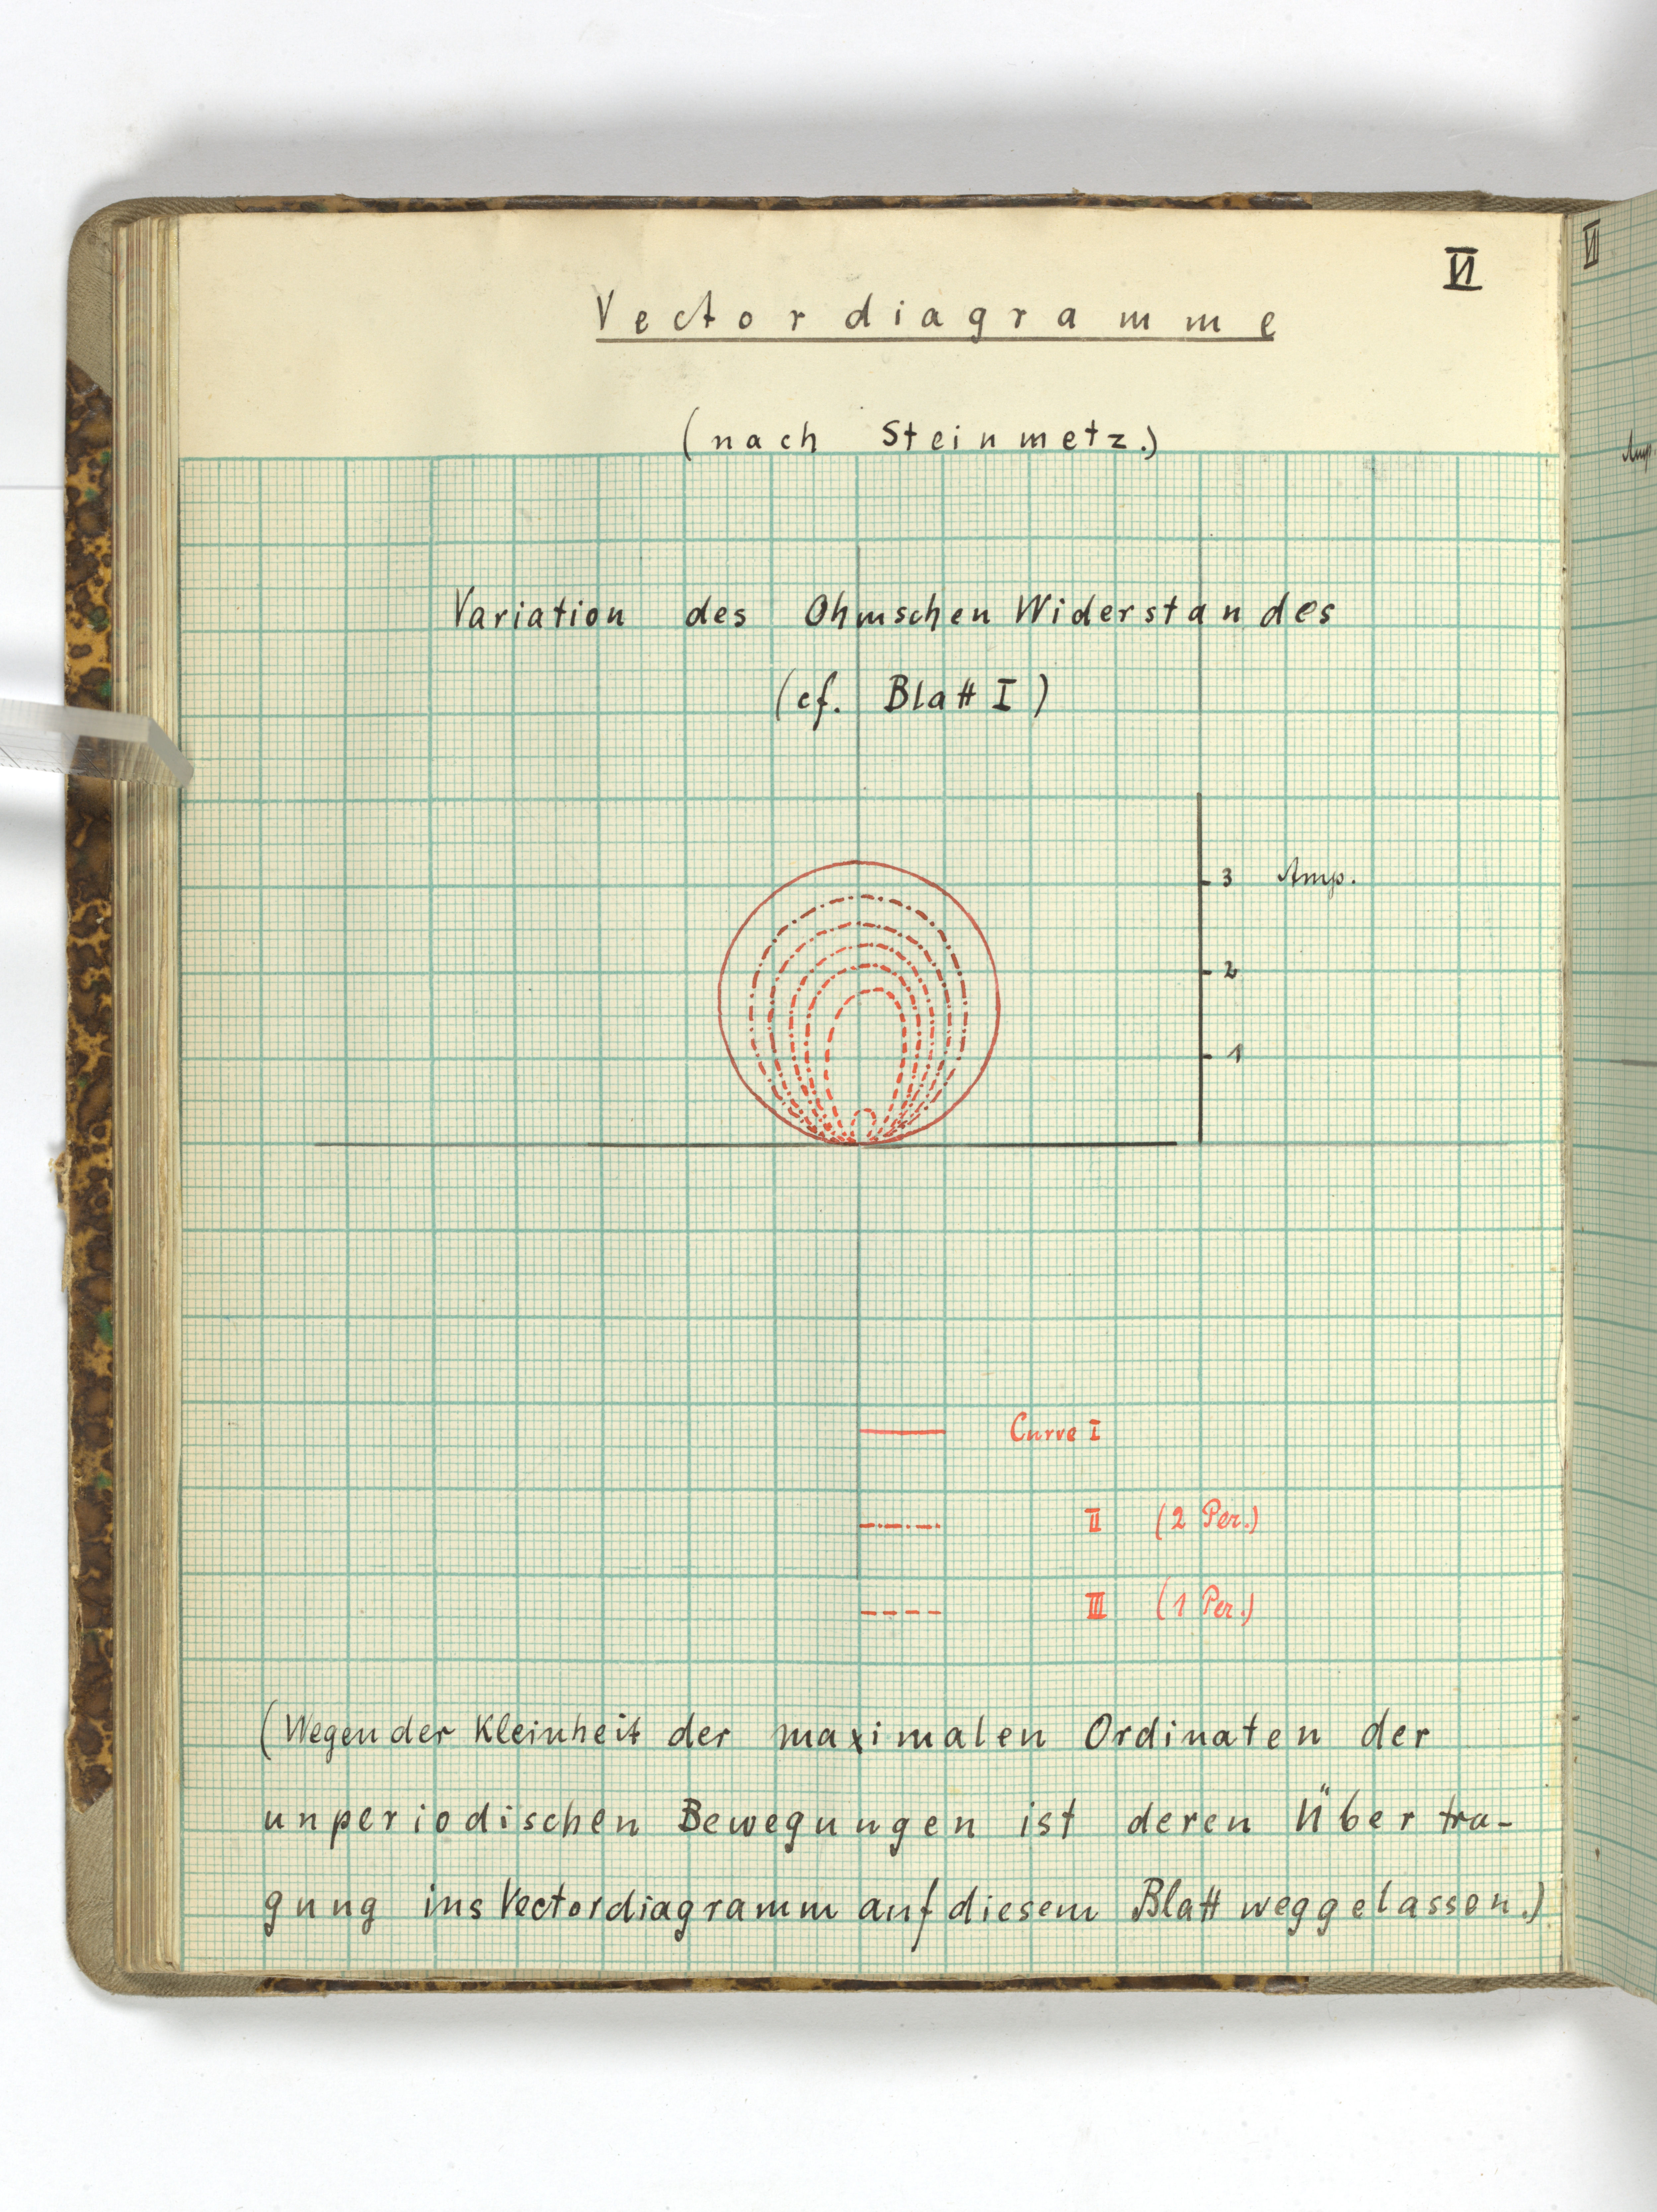 VI
Vectordiagramme
(nach Steinmetz.)
Variation des Ohmschen Widerstandes
(cf. Blatt I)
3 Amp.
2
1
Curve I
II (2 Per.)
III (1 Per.)
(Wegen der Kleinheit der maximalen Ordinaten der
unperiodischen Bewegungen ist deren Übertra-
gung ins Vectordiagramm auf diesem Blatt weggelassen.)
VII
Amp.